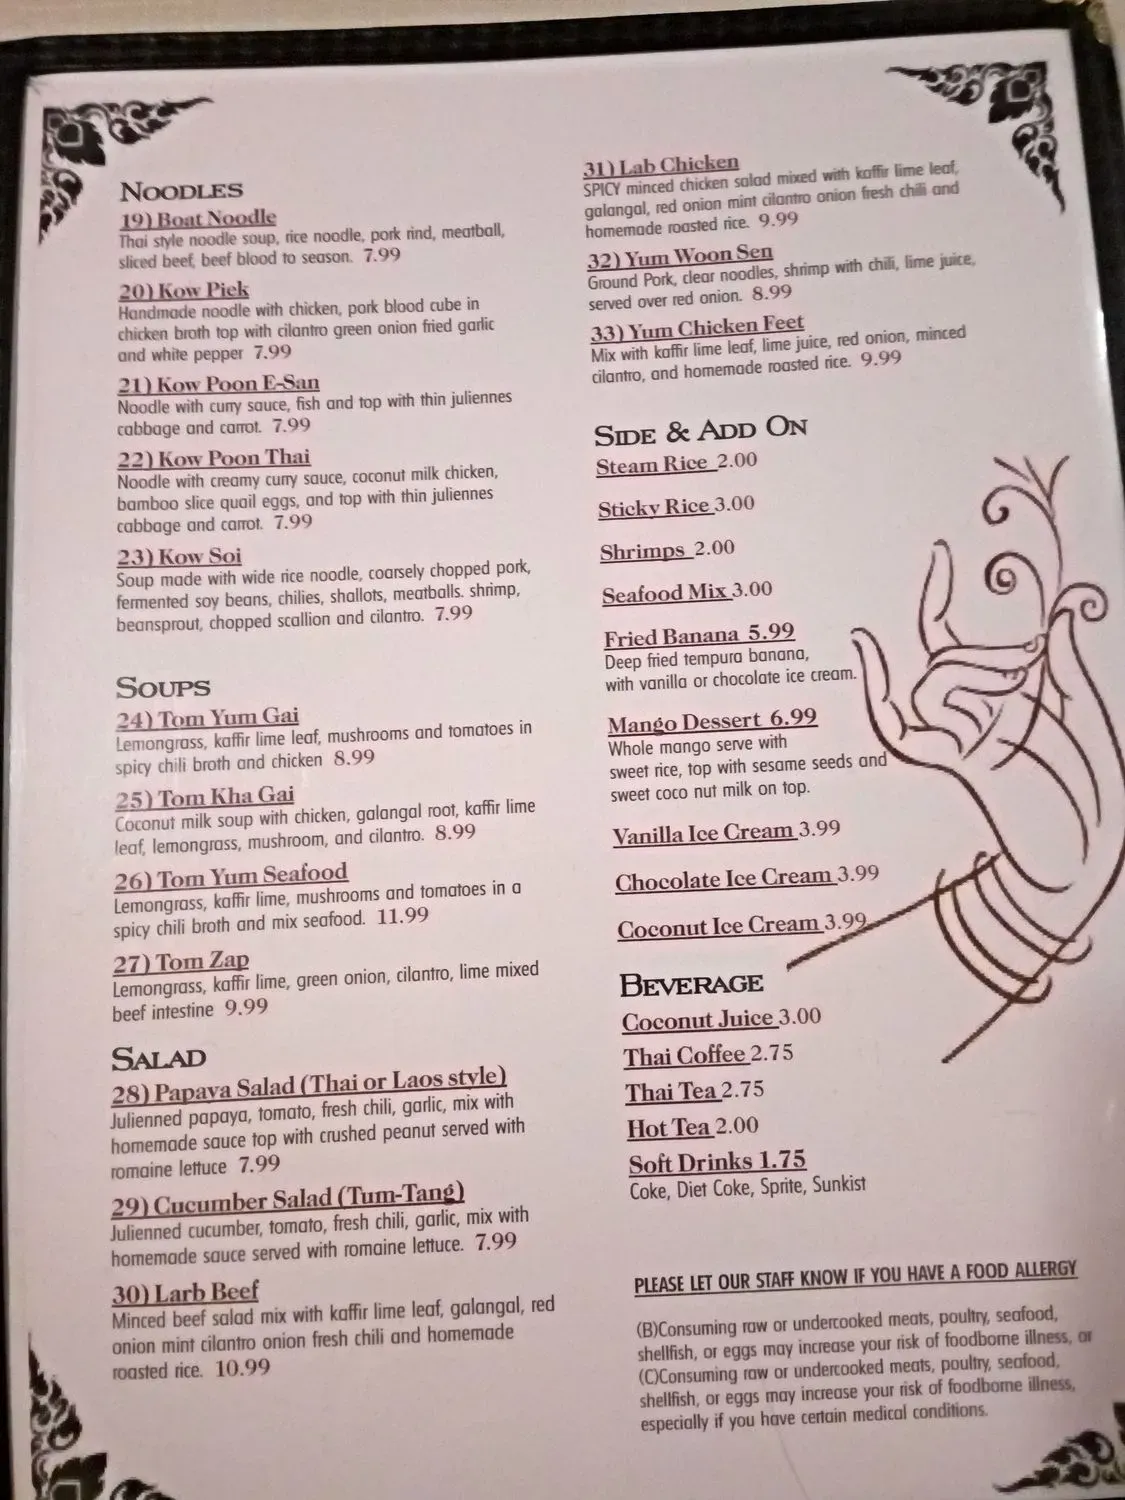 NOODLES
19) Boat Noodle
Thai style noodle soup, rice noodle, pork rind, meatball,
sliced beef, beef blood to season. 7.99
20) Kow Piek
Handmade noodle with chicken, pork blood cube in
chicken broth top with cilantro green onion fried garlic
and white pepper 7.99
21) Kow Poon E-San
Noodle with curry sauce, fish and top with thin juliennes
cabbage and carrot. 7.99
22) Kow Poon Thai
Noodle with creamy curry sauce, coconut milk chicken,
bamboo slice quail eggs, and top with thin juliennes
cabbage and carrot. 7.99
23) Kow Soi
Soup made with wide rice noodle, coarsely chopped pork,
fermented soy beans, chilies, shallots, meatballs. shrimp,
beansprout, chopped scallion and cilantro. 7.99
SOUPS
24) Tom Yum Gai
Lemongrass, kaffir lime leaf, mushrooms and tomatoes in
spicy chili broth and chicken 8.99
25) Tom Kha Gai
Coconut milk soup with chicken, galangal root, kaffir lime
leaf, lemongrass, mushroom, and cilantro. 8.99
26) Tom Yum Seafood
Lemongrass, kaffir lime, mushrooms and tomatoes in a
spicy chili broth and mix seafood. 11.99
27) Tom Zap
Lemongrass, kaffir lime, green onion, cilantro, lime mixed
beef intestine 9.99
SALAD
28) Papaya Salad (Thai or Laos style)
Julienned papaya, tomato, fresh chili, garlic, mix with
homemade sauce top with crushed peanut served with
romaine lettuce 7.99
29) Cucumber Salad (Tum-Tang)
Julienned cucumber, tomato, fresh chili, garlic, mix with
homemade sauce served with romaine lettuce. 7.99
30) Larb Beef
Minced beef salad mix with kaffir lime leaf, galangal, red
onion mint cilantro onion fresh chili and homemade
roasted rice. 10.99
31) Lab Chicken
SPICY minced chicken salad mixed with kaffir lime leaf,
galangal, red onion mint cilantro onion fresh chili and
homemade roasted rice. 9.99
32) Yum Woon Sen
Ground Pork, clear noodles, shrimp with chili, lime juice,
served over red onion. 8.99
33) Yum Chicken Feet
Mix with kaffir lime leaf, lime juice, red onion, minced
cilantro, and homemade roasted rice. 9.99
SIDE & ADD ON
Steam Rice 2.00
Sticky Rice 3.00
Shrimps 2.00
Seafood Mix 3.00
Fried Banana 5.99
Deep fried tempura banana,
with vanilla or chocolate ice cream.
Mango Dessert 6.99
Whole mango serve with
sweet rice, top with sesame seeds and
sweet coco nut milk on top.
Vanilla Ice Cream 3.99
Chocolate Ice Cream 3.99
Coconut Ice Cream 3.99
BEVERAGE
Coconut Juice 3.00
Thai Coffee 2.75
Thai Tea 2.75
Hot Tea 2.00
Soft Drinks 1.75
Coke, Diet Coke, Sprite, Sunkist
PLEASE LET OUR STAFF KNOW IF YOU HAVE A FOOD ALLERGY
(B)Consuming raw or undercooked meats, poultry, seafood,
shellfish, or eggs may increase your risk of foodborne illness, or
(C)Consuming raw or undercooked meats, poultry, seafood,
shellfish, or eggs may increase your risk of foodborne illness,
especially if you have certain medical conditions.